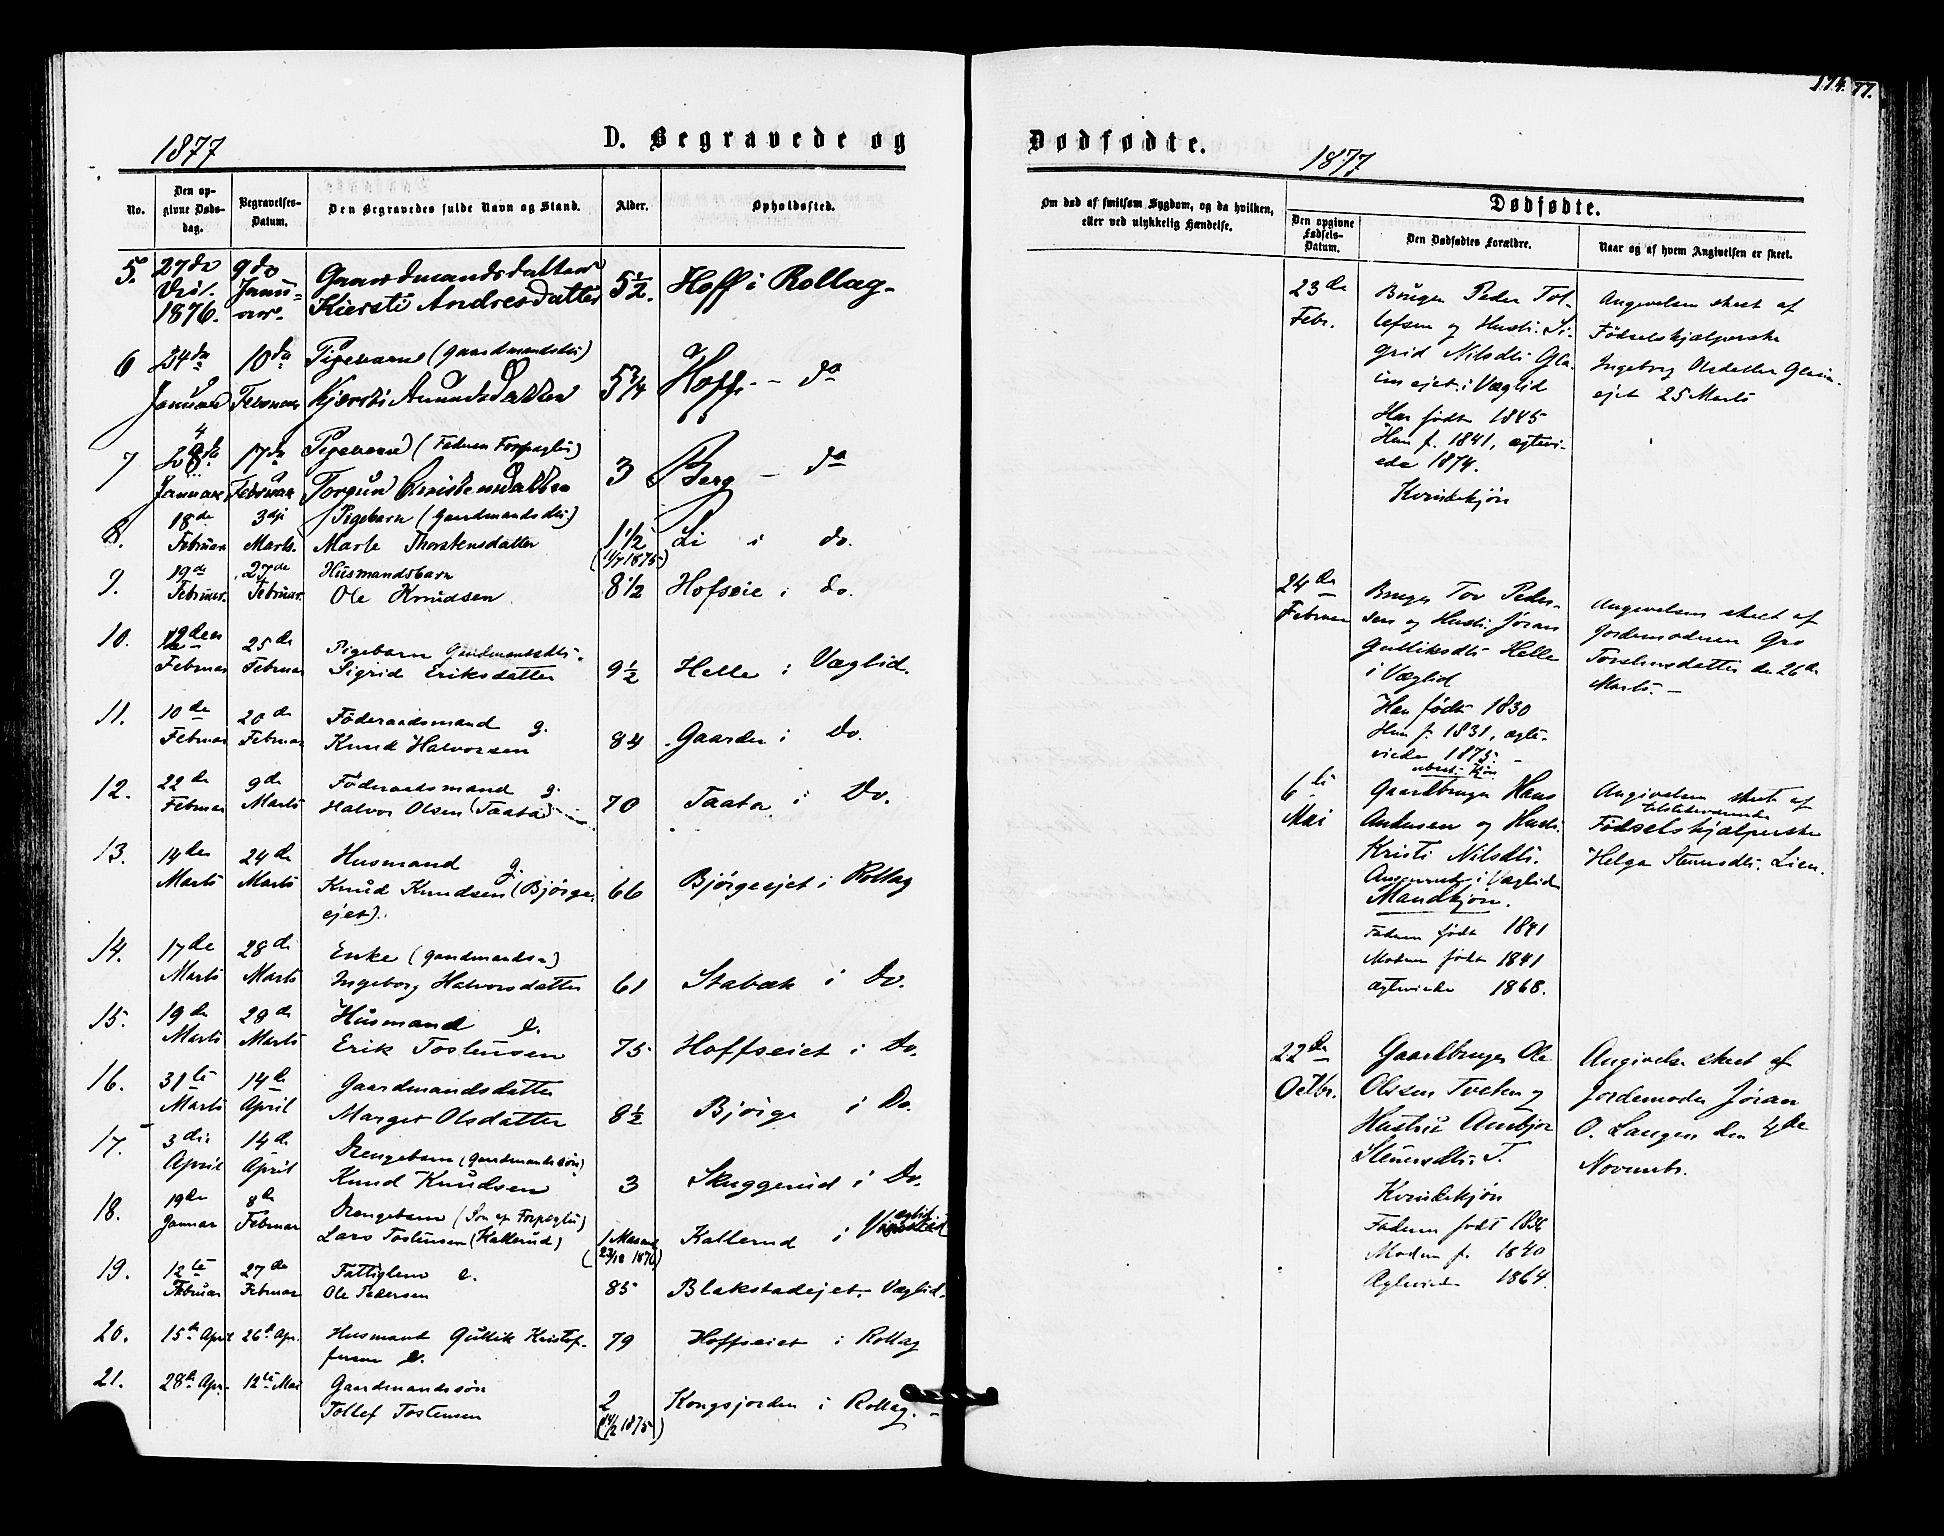 1877
D. Begravede og
No.
Den opgivne Dødsdag.
Begravelses-Datum.
Den Begravedes fulde Navn og Stand.
Alder.
Opholdssted.
5. 27de 9de Gaardmandsdatter 5½. Hoff i Rollag
1876. Kiersti Andresdatter
6 24de 10de Pigebarn (Gaardmandsdtr) 5¾ Hoff - do
Januar Februar Kjersti Amundsdatter
7 17de Pigebarn (Faderen Forpagter) 3 Berg - do
Januar Februar Torgun Christensdatter
8. 18de 3die Pigebarn (Gaardmandsdtr) 1½ Li i do.
Februar Marts. Marte Thorstensdatter (11/7 1875)
9. 19de 27de Husmandsbarn 8½ Hofseie i do.
Februar. Februar. Ole Knudsen
10. 25de Pigebarn Gaardmandsdtr. 9½ Helle i Væglid.
Februar Februar Sigrid Eriksdatter
11. 10de 20de Föderaadsmand g. 84 Gaarden i Do.
Februar Februar Knud Halvorsen
12. 22de 9de Föderaadsmand g. 70 Taata i Do.
Februar Marts Halvor Olsen (Taata)
13. 14de 24de Husmand g. 66 Bjørgeejet i Rollag
Marts Marts Knud Knudsen (Bjørge-
ejet).
14. 17de 28de Enke (gaardmands-) 61 Stabæk i Do.
Marts Marts Ingeborg Halvorsdatter
15. 19de 28de Husmand e. 75 Hoffseiet i Do.
Marts Marts Erik Tostensen
16. 31te 14de Gaardmandsdatter 8½ Bjørge i Do.
Marts April Margit Olsdatter
17. 3die 14de Drengebarn (Gaardmandssön) 3 Skuggerud i Do.
April April Knud Knudsen
18. 19de 8de Drengebarn (Sön af Forpagter) Kallerud i Væglid
Januar Februar Lars Tostensen (Kallerud)
19. 12te 27de Fattiglem e. 85 Blakstadejet. Væglid.
Februar Februar Ole Pedersen
20. 15de April 26de Apr. Husmand Gullik Kristof- 79 Hoffseiet i Rollag
fersen e.
21. 28de Apr. 12te Mai Gaardmandssön 2 Kongsjorden i Rollag.
Tollef Tostensen (14/2 1875)
174. 77.
Dødfødte.
1877
Om død af smitsom Sygdom, og da hvilken,
eller ved ulykkelig Hændelse.
Dødfødte.
Den opgivne Fødsels-Datum.
Den Dødfødtes Forældre.
Naar og af hvem Angivelsen er skeet.
23de Bruger Peder Tol- Angivelsen skeet af
Febr. lefsen og Hustr. Si- Fødselshjælperske
grid Nilsdtr Gla- Ingeborg Olsdatter Glaim-
imejet i Væglid ejet 25 Marts
Han født 1845
Hun f. 1841, ægtevi-
ede 1874.
Kvindekjøn
24de Bruger Tov Peder- Angivelsen skeet af
Februar sen og Hustr. Jöran Jordemoderen Gro
Gulliksdtr Helle Torstensdatter de 26de
i Væglid Marts.-
Han født 1830
Hun f. 1831, ægte-
viede 1875.
6te Gaardbruger Hans Angivelsen skeet af
Mai Andersen og Hustr. Fødselshjælperske
Kristi Nilsdtr. Helga Steensdtr. Lien.
i Væglid
Mandkjøn.
Faderen født 1841
Moderen født 1841
ægteviede 1868.
22de Gaardbruger Ole Angivelse skeet af
Octbr. Olsen Tveten og Jordemoder Jöran
Hustru Ambjør O. Langen den 4de
Steensdtr. T. Novembr.
Kvindekjön
Faderen født
Moderen f. 1840
Ægteviede 1864.